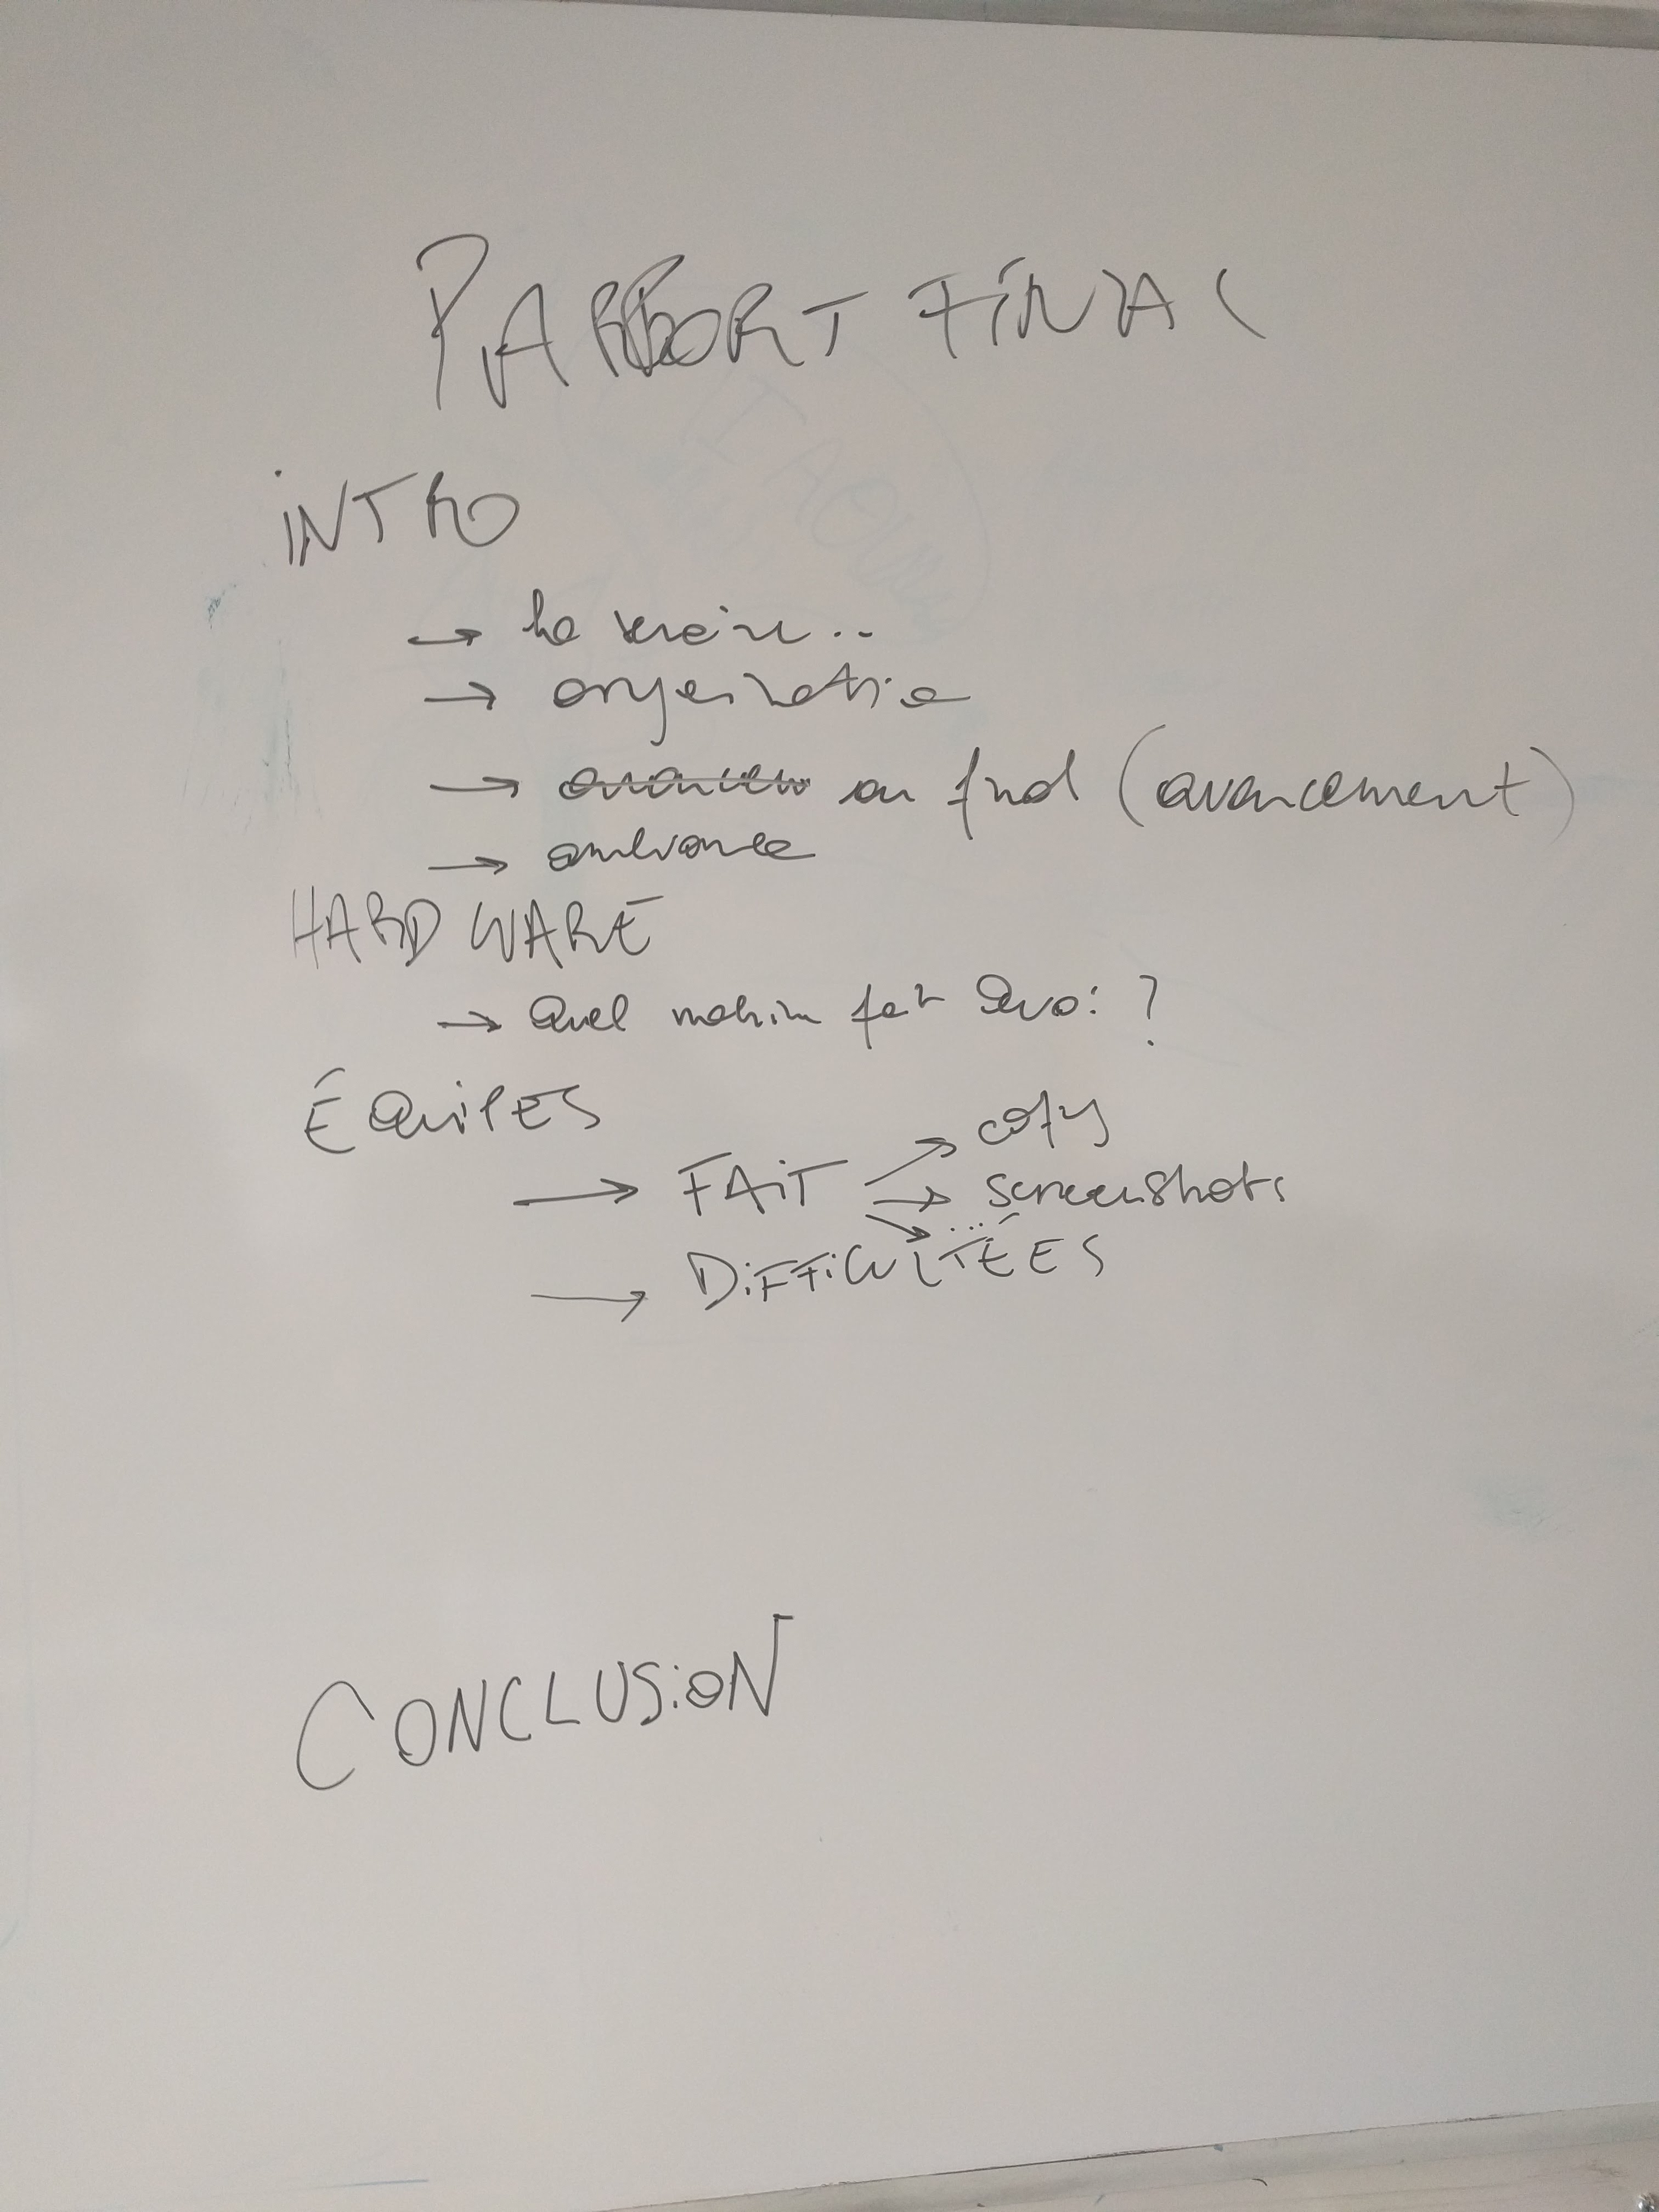 RAPPORT FINAL
INTRO
→ la semaine..
→ organisation
→ au final (avancement)
→ ambiance
HARDWARE
→ Quel machine fait Quoi ?
ÉQUIPES
→ FAIT → copy
→ screenshots
→ ...
→ DIFFICULTÉES
CONCLUSION